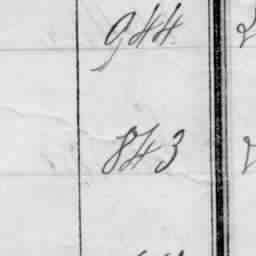 944
843